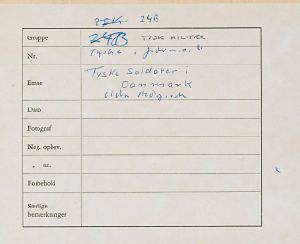 24B
Gruppe 24B TYSK MILITÆR
Nr. Tyske
Emne Tyske Soldater i
Danmark
Dato
Fotograf
Neg. opbev.
„ nr.
Forbehold
Særlige
bemærkninger